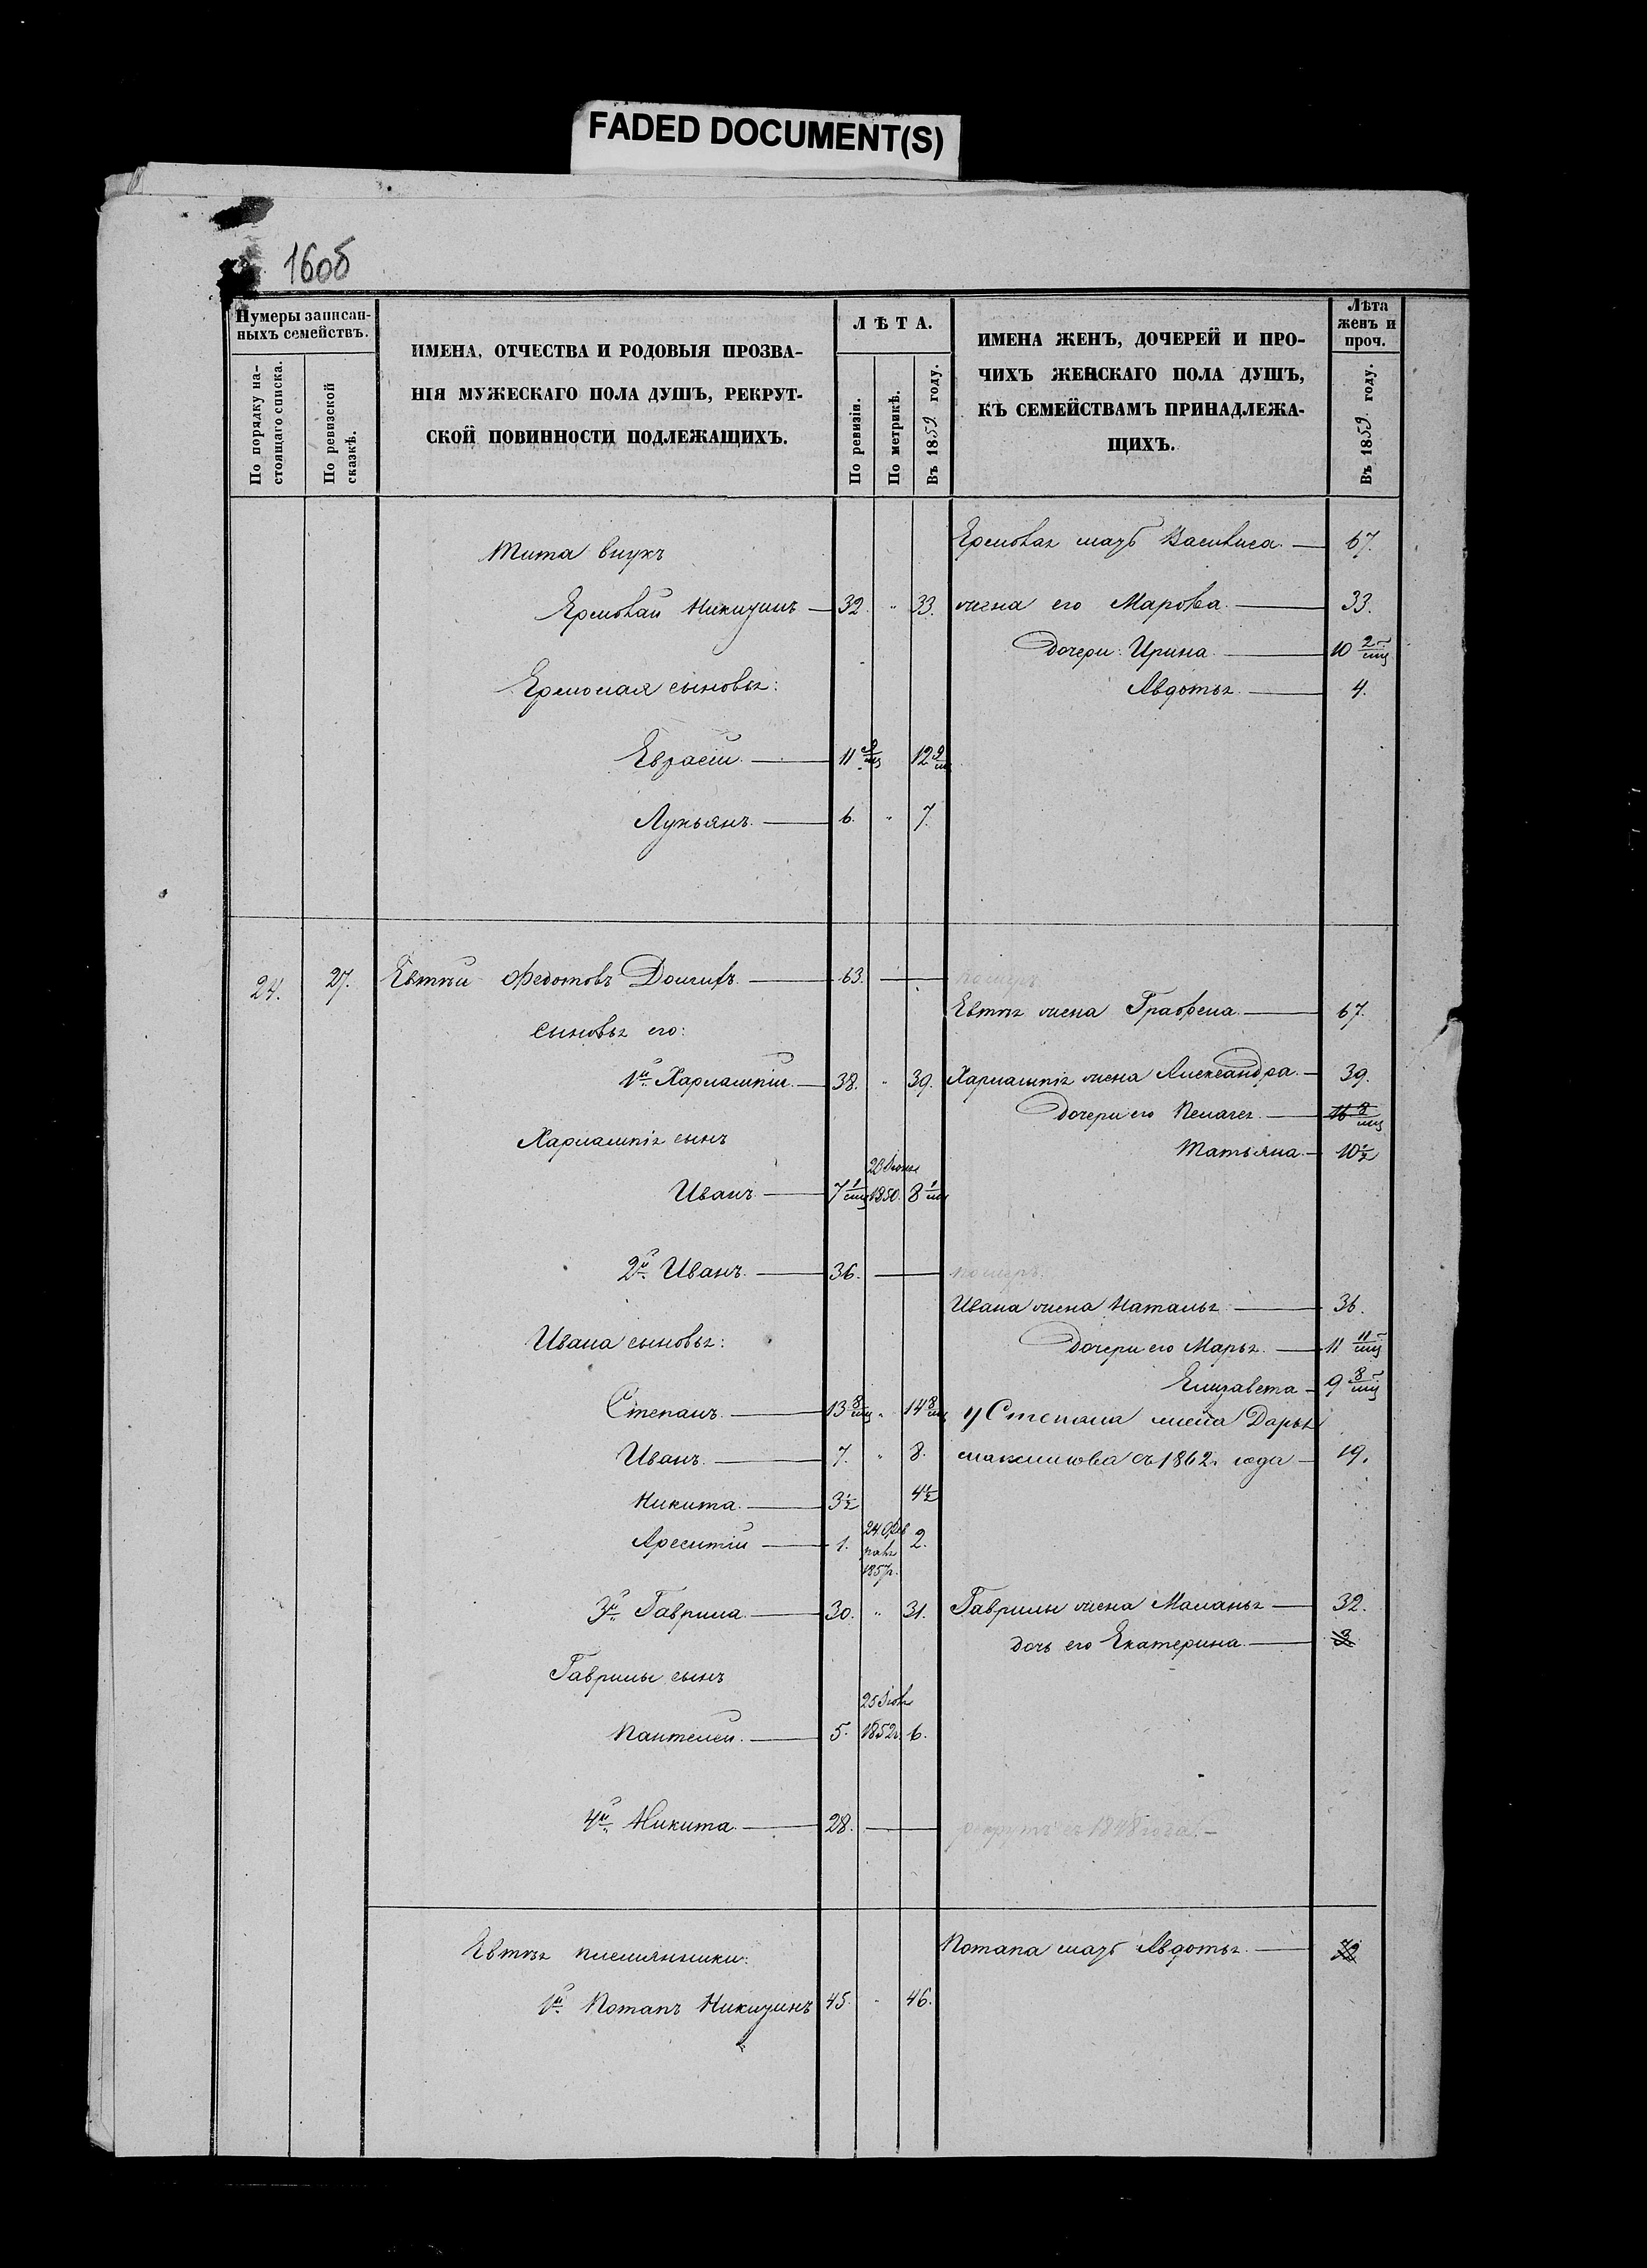 FADED DOCUMENT(S)
160б
Нумеры записан-
ныхъ семействъ.
По порядку на-
стоящаго списка.
По ревизской
сказкѣ.
ИМЕНА, ОТЧЕСТВА И РОДОВЫЯ ПРОЗВА-
НІЯ МУЖЕСКАГО ПОЛА ДУШЪ, РЕКРУТ-
СКОЙ ПОВИННОСТИ ПОДЛЕЖАЩИХЪ.
ЛѢТА.
По ревизіи.
По метрикѣ.
Въ 1859 году.
ИМЕНА ЖЕНЪ, ДОЧЕРЕЙ И ПРО-
ЧИХЪ ЖЕНСКАГО ПОЛА ДУШЪ,
КЪ СЕМЕЙСТВАМЪ ПРИНАДЛЕЖА-
ЩИХЪ.
Лѣта
женъ и
проч.
Въ 1859 году.
Ермолая мать Василиса. 67.
Тита внукъ
Ермолай Никитинъ 32. " 33. жена его Марѳа. 33.
дочери: Ирина. 10 2/мц
Ермолая сыновья: Авдотья. 4.
11 9/мц 12 9/мц
Лукьянъ. 6. " 7.
24. 27. Евтѣй Федотовъ 63. померъ
Евтѣя жена Графена. 67.
сыновья его:
1й Харлампій. 38. " 39. Харлампія жена Александра. 39.
дочери его Пелагея 16 8/мц
Харлампія сынъ Татьяна. 10½
20 Іюня
Иванъ 7 1/мц 1850. 8 1/мц
2й Иванъ. 36. померъ.
Ивана жена Наталья 36.
Ивана сыновья: дочери его Марья. 11 11/мц
Елизавета 9 8/мц
Степанъ. 13 8/мц " 14 8/мц у Степана жена Дарья
Иванъ. 7. " 8. Максимова съ 1862. года 19.
Никита. 3½ 4½
24 Фев
1. раля 2.
1857г.
3й Гаврила 30. " 31. Гаврилы жена Маланья 32.
дочь его Екатерина. 3
Гаврилы сынъ
Пантелей. 5. 1852г. 6.
4й Никита. 28. рекрутъ съ 1848 года.
Евтѣя племянники: Потапа мать Авдотья.
1й Потапъ Никитинъ 45. " 46.